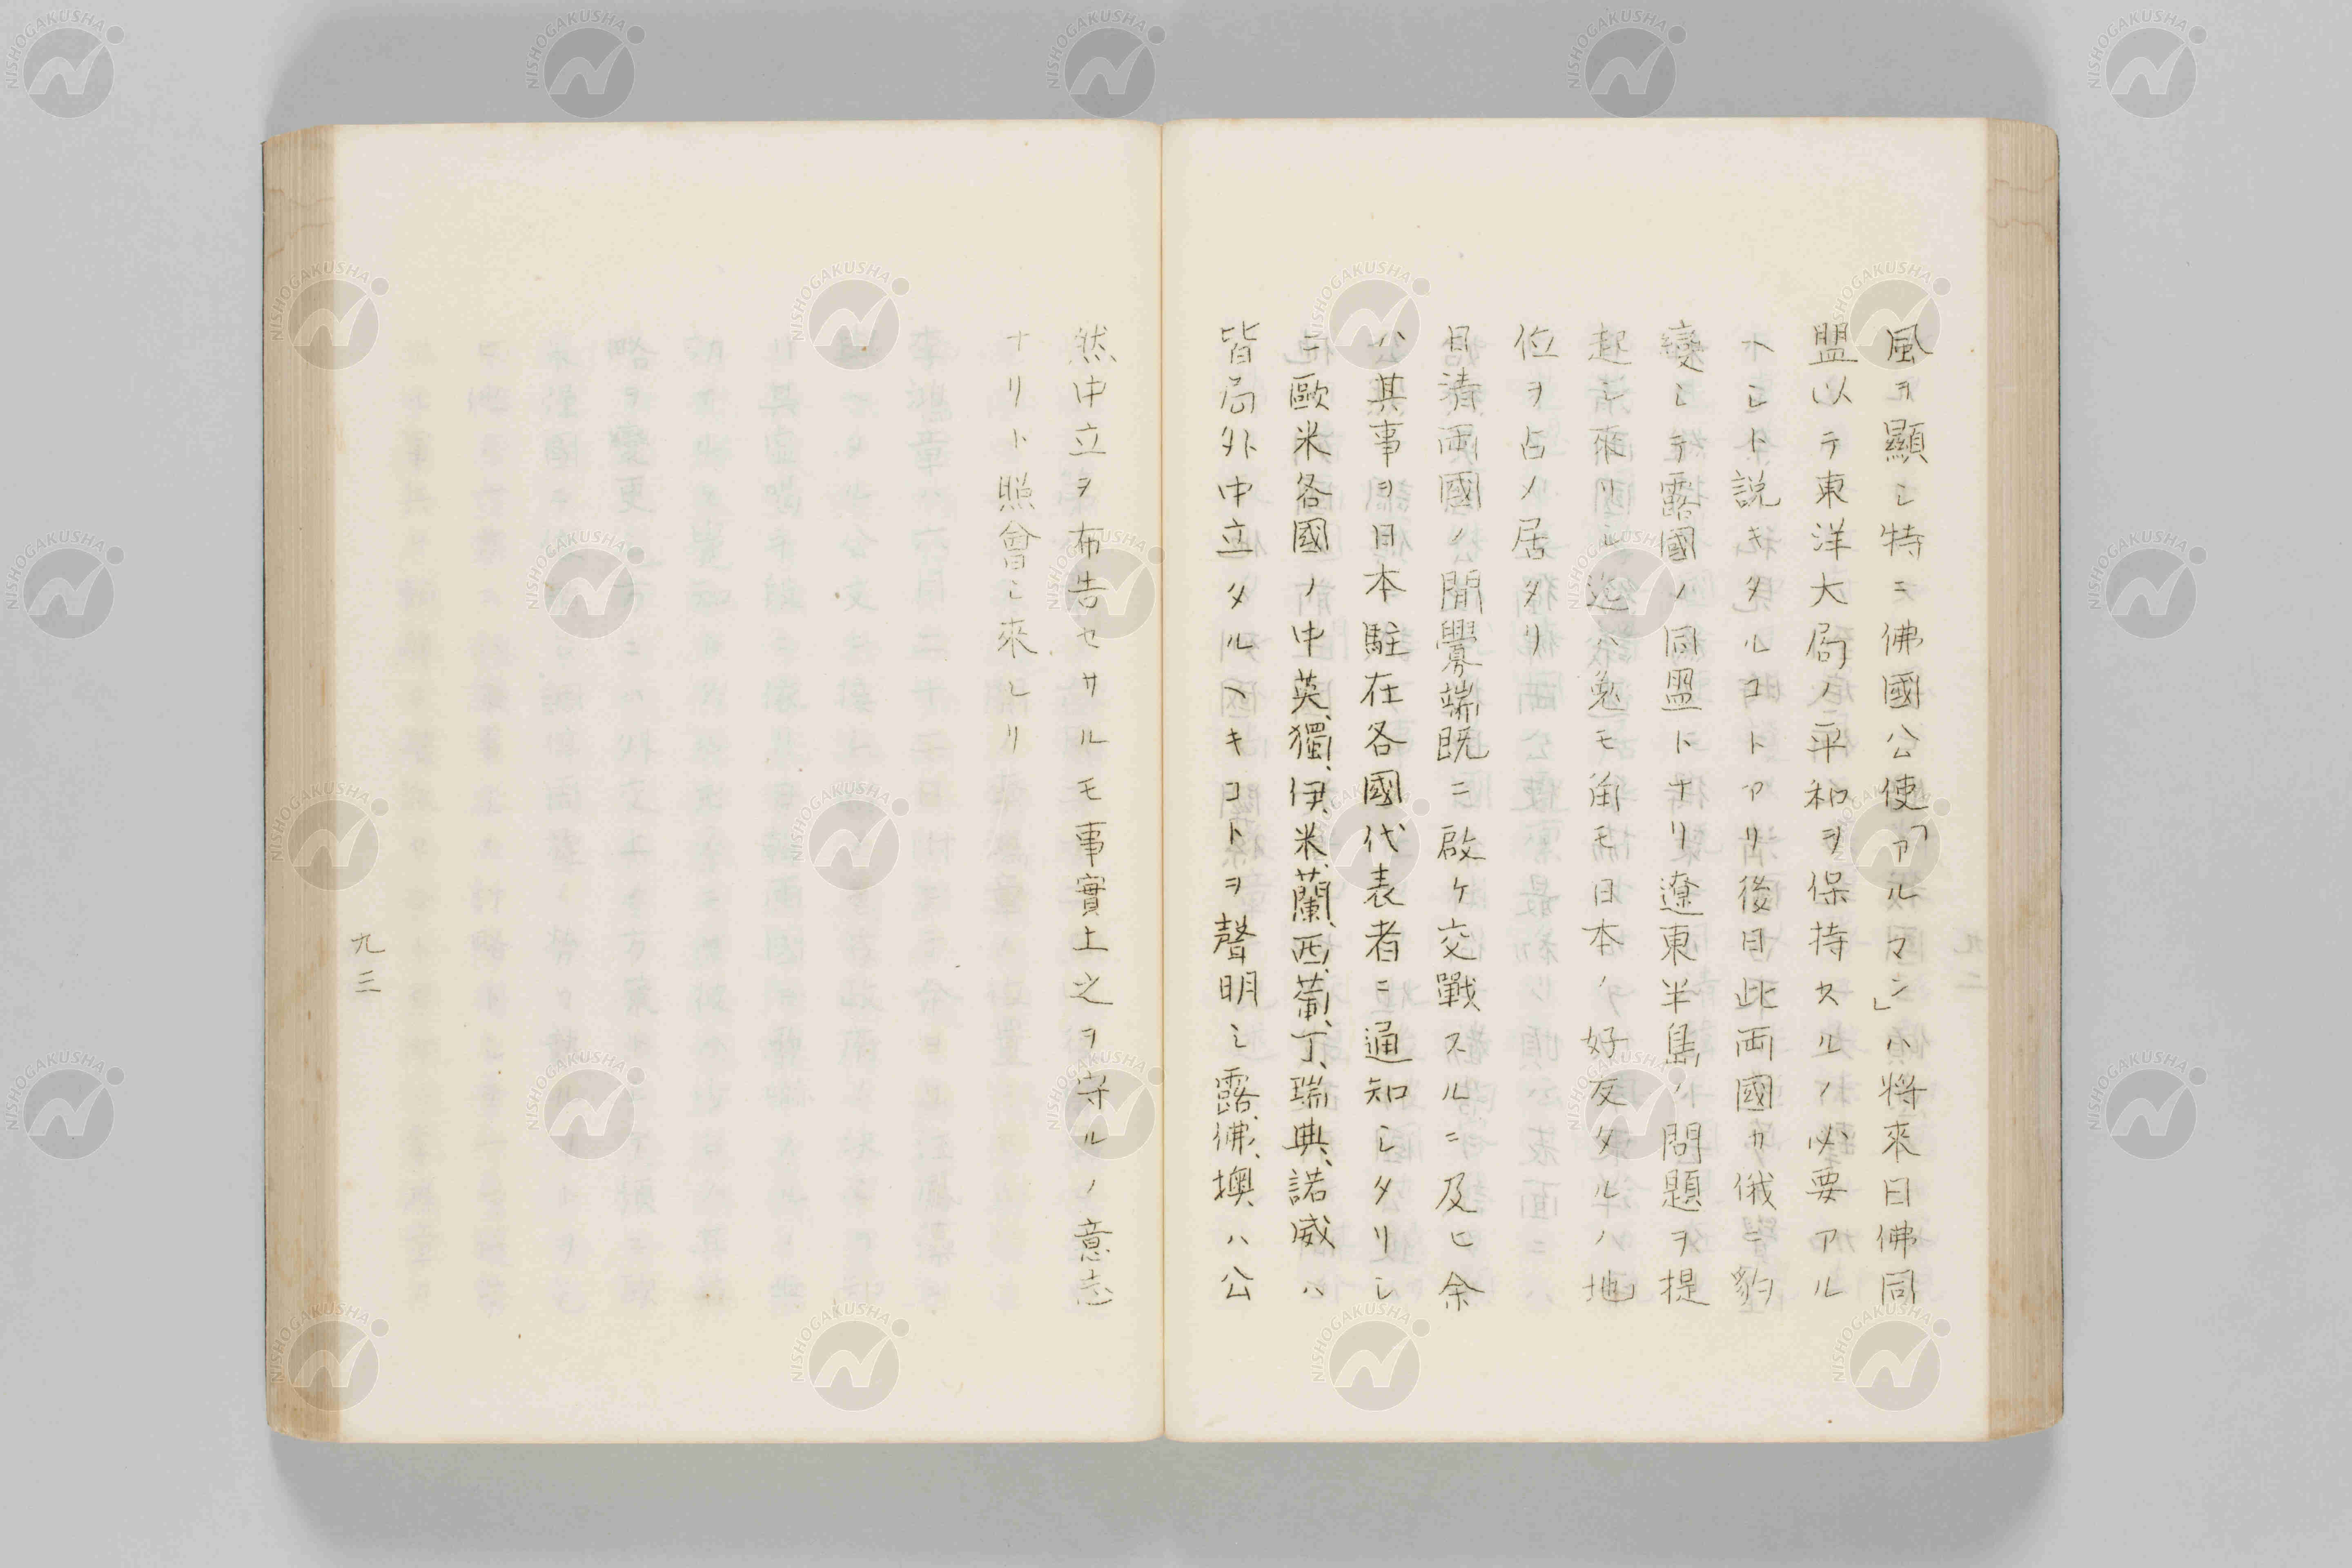 風ヲ顯シ特ニ佛國公使「アルマン」ハ將來日佛同
盟以テ東洋大局ノ平和ヲ保持スルノ必要アル
ヘシト説キタルコトアリ後日此両國カ俄ニ豹
變シテ露國ノ同盟トナリ遼東半島ノ問題ヲ提
起シ來リシ迄ハ兎モ角モ日本ノ好友タルノ地
位ヲ占メ居タリ
日清両國ノ間釁端既ニ啟ケ交戰スルニ及ヒ余
ハ其事ヲ日本駐在各國代表者ニ通知シタリシ
ニ歐米各國ノ中英、獨、伊、米、蘭、西、葡、丁、瑞典、諾威ハ
皆局外中立タルヘキコトヲ聲明シ露、佛、墺ハ公
然中立ヲ布告セサルモ事實上之ヲ守ルノ意志
ナリト照會シ來レリ
九三
NISHOGAKUSHA